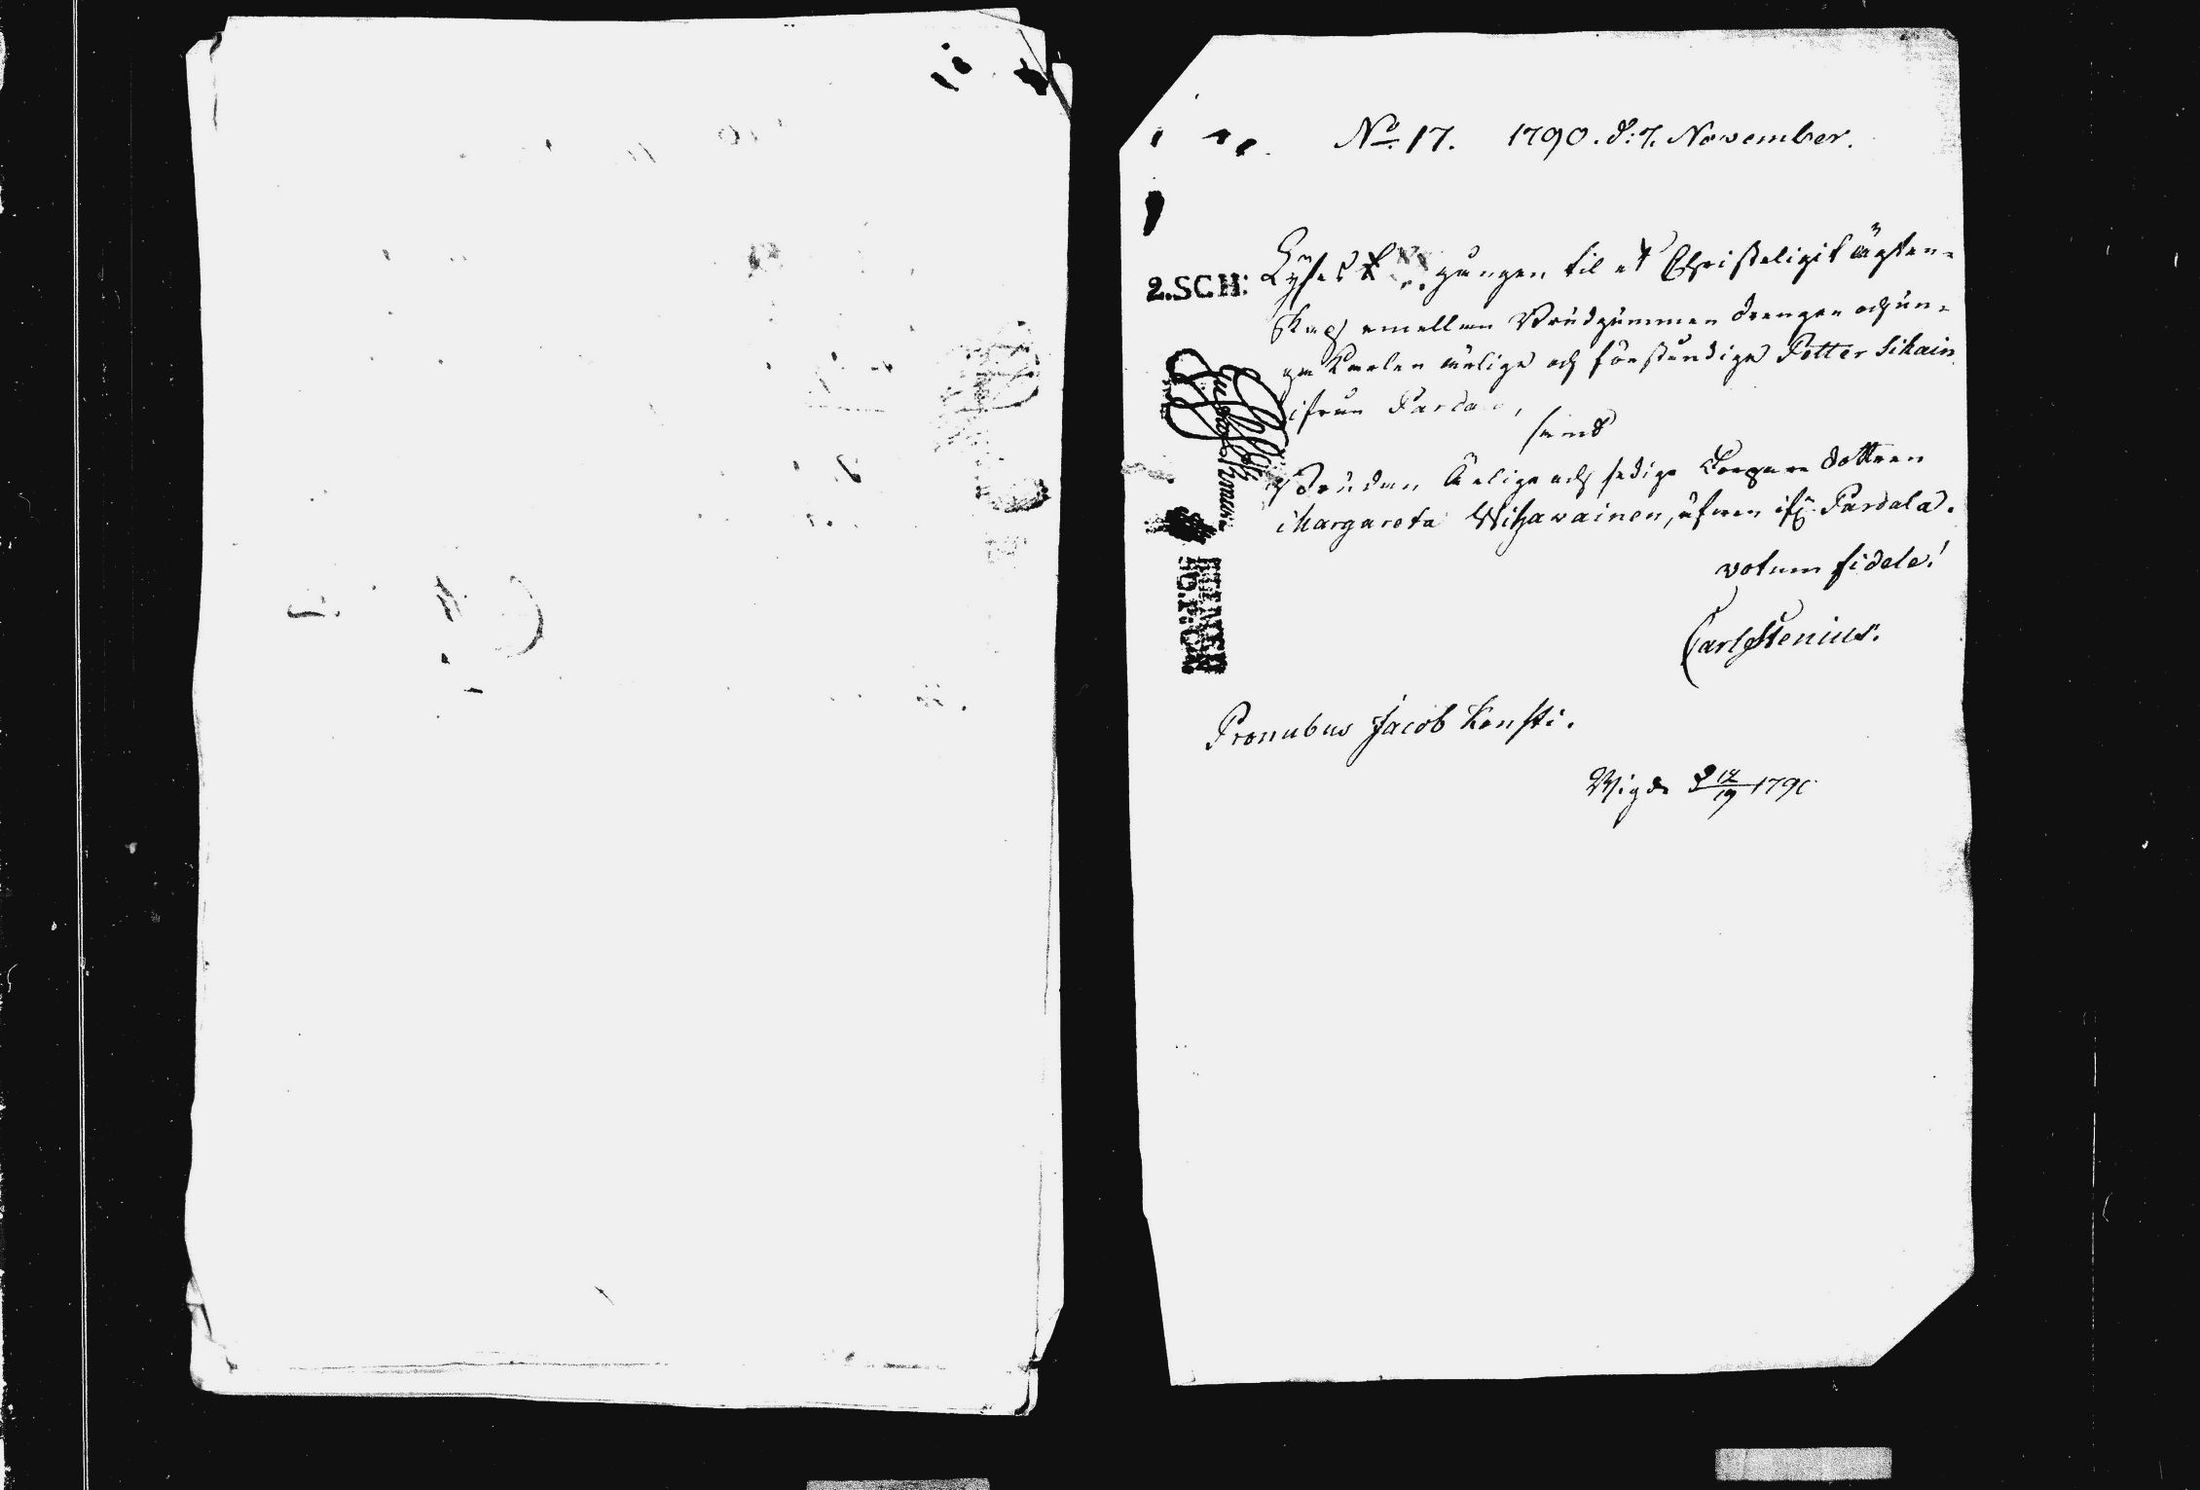 No 17. 1790. d: 7. November.
2.SCH:
Lyses gangen til et Christeligit ägten-
skap emellan Brudgummen drengen och un-
ga Karlen ärlige och förståndige Petter Sikain
ifrån Pardala,
samt
Bruden ärliga och sediga dottren
Margareta Wihawainen, äfwen ifr: Pardala.
votum fidele!
Carl Stenius.
Pronubus Jacob Konsti.
Wigde d 12/19 1790